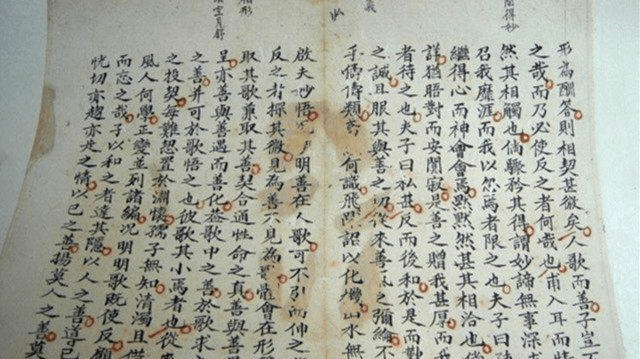 得妙
義
形為酬答則相契甚微矣人歌而善子豈
之哉而乃必使反之者何哉也甫入耳而
然其相觸也倘驟矜其得謂妙諦無事深
召我靡涯而我以忽焉者限之也夫子曰
繼得心而神會會焉默默然甚其相洽也
詳猶晤對而安闃寂是善之贈我甚厚而我
者待之也夫子曰私甚反而後和於是而對
之誠且服其與善之切從來善氣之彌綸不
手儔儔類何識飛詔以化機山水無
啟夫妙悟明善在人歌可不引而伸之
反之者探其微見為善不見為體會在形
取其歌兼取其善契合通性命之真善與善
呈亦善與善遇而善化茲歌中之善於歌求
之善并可於歌悟之也彼歌其小焉者也從
之投契每難恝置於淵懷孺子無知清濁且
風人何學正變並列諸編况明明歌既使反
而忘之哉子以和之者達其隱以人之善道己
恍切亦趨亦走之情以己之善揚莫人之善